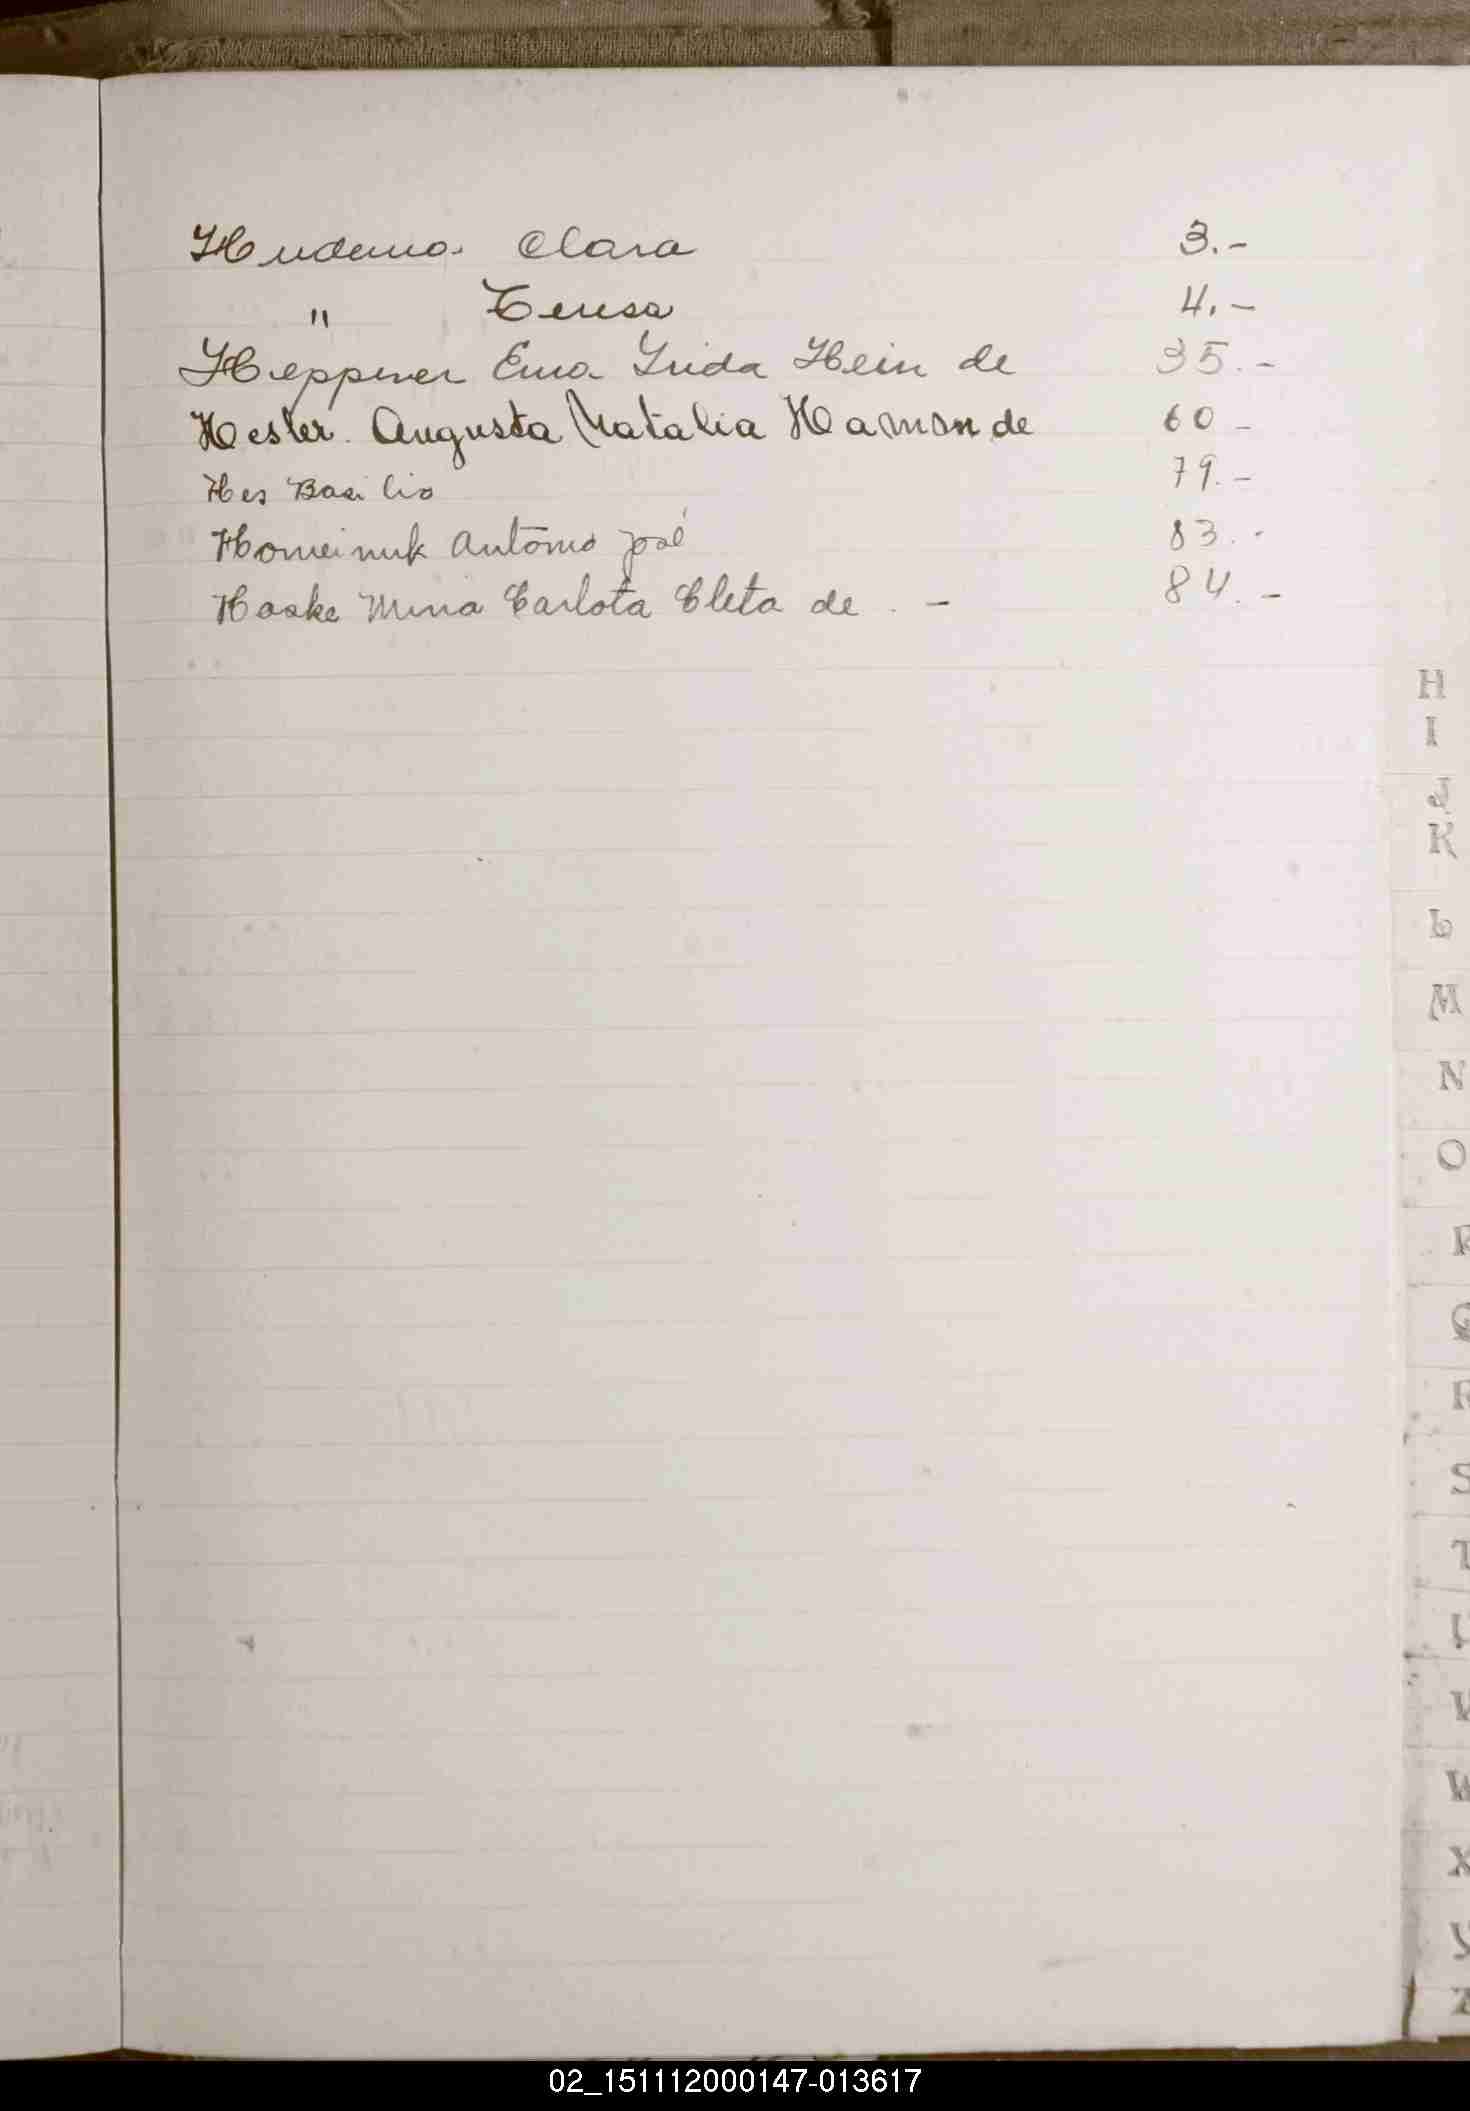 Hudema Clara 3.-
" Teresa 4.-
Heppner Ema Frida Hein de 35.-
Hester. Augusta Natalia Hamon de 60-
Hes Basilio 79.-
Homeinuk Antonio José 83.-
Haske Mina Carlota Cleta de . - 84.-
H
I
J
K
L
M
N
O
P
Q
R
S
T
U
V
W
X
Y
Z
02_151112000147-013617